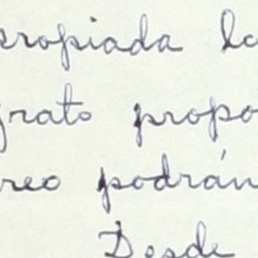 ropiada la
grato propo
reo podrán
Desde